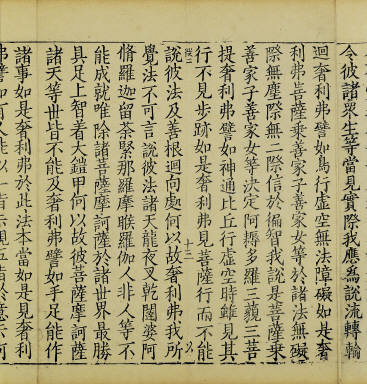 令彼諸衆生等當見實際我應爲說流轉輪
迴奢利弗譬如鳥行虛空無法障礙如是奢
利弗菩薩乘善家子善家女等於諸法無礙
際無塵際無二際信於徧智我說是菩薩乘
善家子善家女等決定阿耨多羅三藐三菩
提奢利弗譬如神通比丘行虛空時雖見其
行不見步跡如是奢利弗見菩薩行而不能
說彼法及善根迴向處何以故奢利弗我所
覺法不可言說彼法諸天龍夜叉乾闥婆阿
脩羅迦留荼緊那羅摩睺羅伽人非人等不
能成就唯除諸菩薩摩訶薩於諸世界最勝
具足上智著大鎧甲何以故彼菩薩摩訶薩
諸天等世皆不能及奢利弗譬如手足能作
諸事如是奢利弗於此法本當如是見奢利